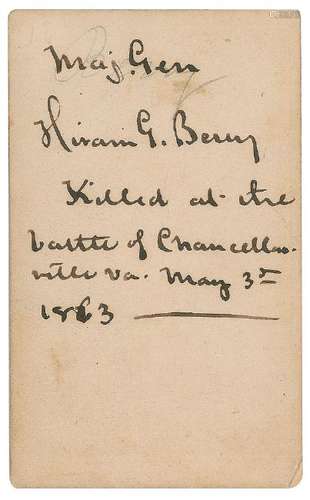 Maj. Gen
Hiram G. Berry
Killed at the
battle of Chancellors-
ville Va. May 3d
1863